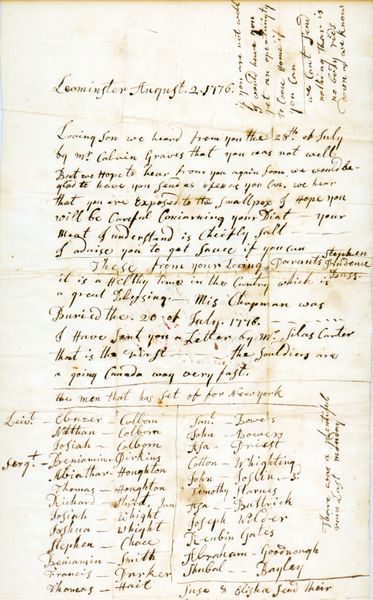 Leominster August. 2. 1776.
if you are not well
I would have you
get an opportunity
to come home if
you can
we dont send
nothing thar is
no Body rids
down as we know
Loving Son we heard from you the 28th of July
by mr Calvin Graves that you was not well
But we Hope to hear from you again Soon we would be
glad to have you Send as ofen as you Can. we hear
that you are Exposed to the Smallpox I hope you
will be Careful Conciarning your Diat — your
meat I understand is Chiefly Salt —
I advise you to get Sauce if you can
These from your Loving Parants
Stephen
Prudence
it is a Helthy time in the Cuntry which is
a great Blessing — Mis Chapman was
Buried the 20 of July. 1776.
I Have Sent you a Letter by Mr Silas Carter
that is the first — the Souldiers are
a going Canada way very fast.
the men that has Set of for Newyork
Leivt. Ebnzer — Colborn
Nathan — Colborn
Josiah — Colborn
Sergt. Benjamin — Pirkins
Abiathar — Houghton
Thomas — Houghton
Richard — Jun
Josiah — Whight
Joshua — Whight
Stephen — Chace
Benjamin — Smith
Francis — Parker
Thomas — Hait
Saml — Bowers
John — Bowers
Asa — Priest
Colton — Whighting
John — Joslin 3d
Timothy — Harnes
Asa — Buttrick
Joseph Wilder
Reubin Gates
Abraham — Goodnough
Thubal — Bayley
Thare was a Plentiful
rain Last monday
Suse & Elisha Send their